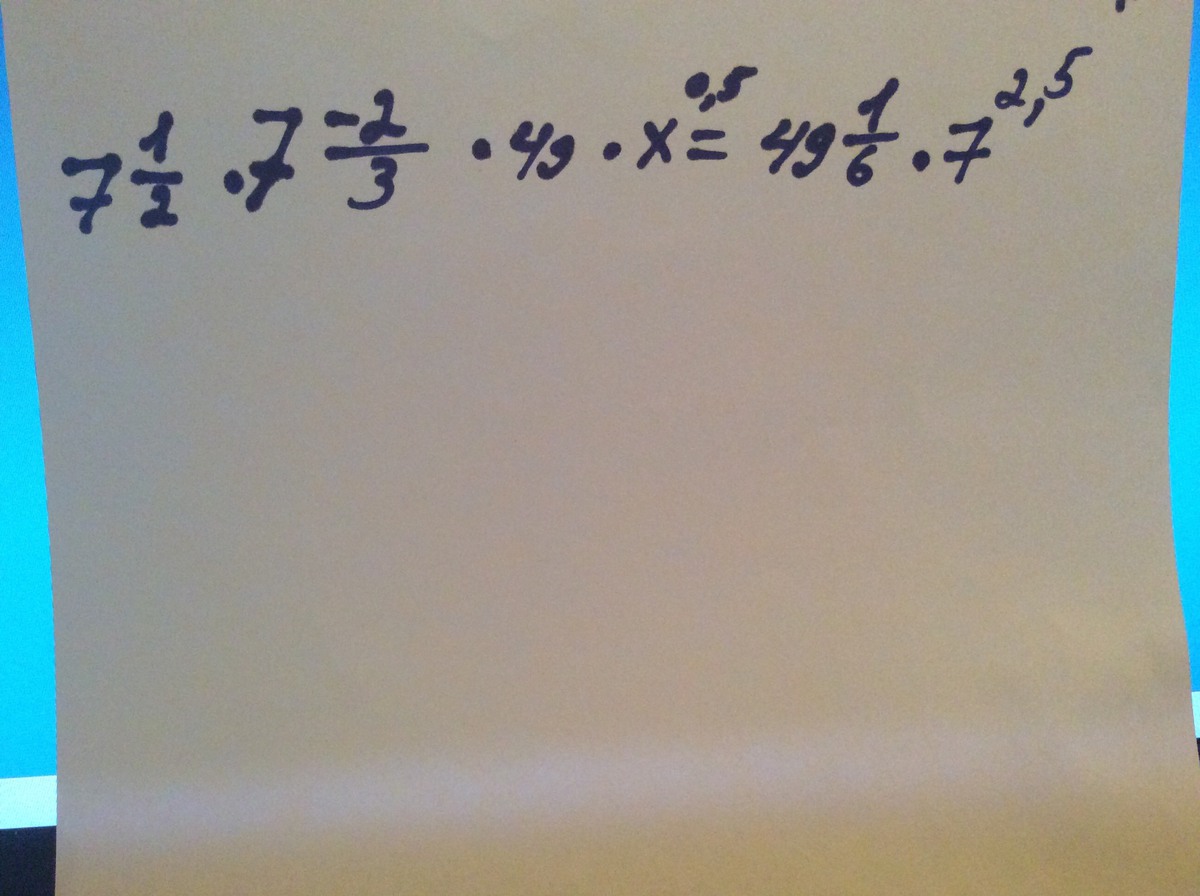 7 1/2 · 7 -2/3 · 49 · x^0,5 = 49 1/6 · 7^2,5